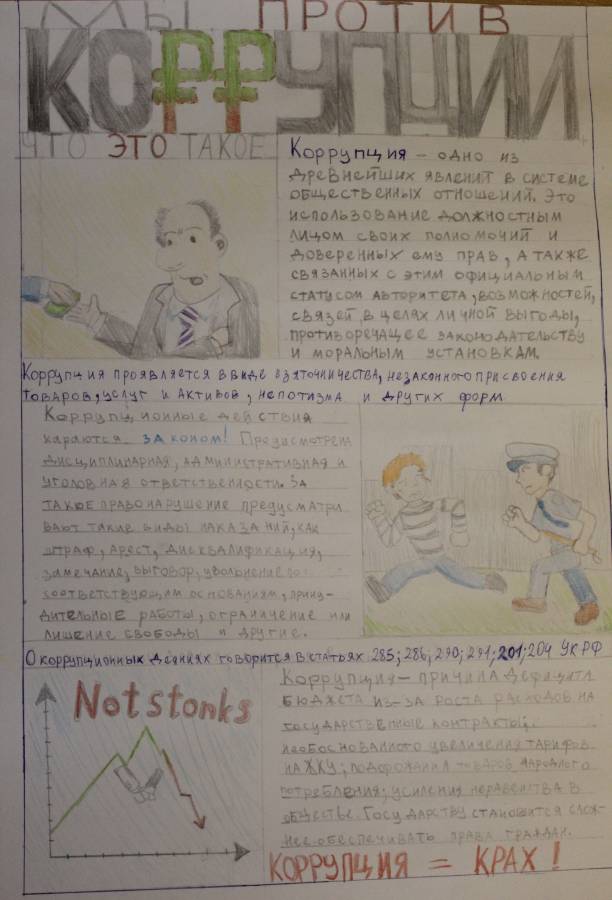 МЫ ПРОТИВ
КОРРУПЦИИ
ЧТО ЭТО ТАКОЕ
Коррупция – одно из
древнейших явлений в системе
общественных отношений. Это
использование должностным
лицом своих полномочий и
доверенных ему прав, а также
связанных с этим официальным
статусом авторитета, возможностей,
связей в целях личной выгоды,
противоречащее законодательству
и моральным установкам.
Коррупция проявляется в виде взяточничества, незаконного присвоения
товаров, услуг и активов, непотизма и других форм
Коррупционные действия
караются законом! Предусмотрена
дисциплинарная, административная и
уголовная ответственность. За
такое правонарушение предусматри
вают такие виды наказаний, как
штраф, арест, дисквалификация,
замечание, выговор, увольнение по
соответствующим основаниям, прину-
дительные работы, ограничение или
лишение свободы и другие.
О коррупционных деяниях говорится в статьях 285; 286; 290; 291; 201; 204 УК РФ
Not stonks
Коррупция – причина дефицита
бюджета из-за роста расходов на
государственные контракты;
необоснованного увеличения тарифов
на ЖКУ; подорожания товаров народного
потребления; усиления неравенства в
обществе. Государству становится слож-
нее обеспечивать права граждан.
КОРРУПЦИЯ = КРАХ!